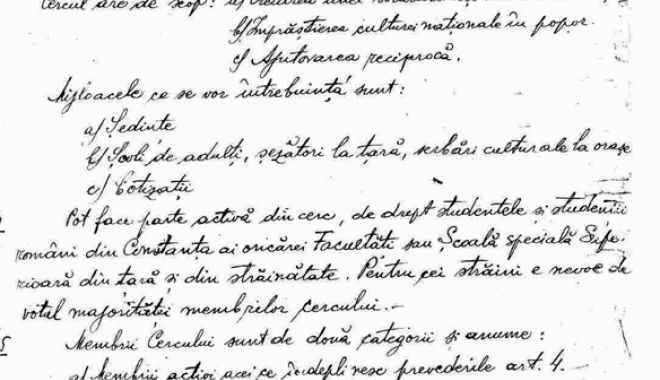 Cercul are de scop: a) Crearea unei
b) Împrăștierea culturei naționale în popor.
c) Ajutorarea reciprocă.
Mijloacele ce se vor întrebuința sunt:
a) Ședințe
b) Școli de adulți, șezători la țară, serbări culturale la orașe
c) Cotizații
Pot face parte activă din cerc, de drept studentele și studenții
români din Constanta ai oricărei Facultăți sau Școală specială Supe-
rioară din țară și din străinătate. Pentru cei străini e nevoe de
votul majorităței membrilor cercului.-
5
Membrii Cercului sunt de două categorii și anume:
a) Membrii activi acei ce îndeplinesc prevederile art. 4.-